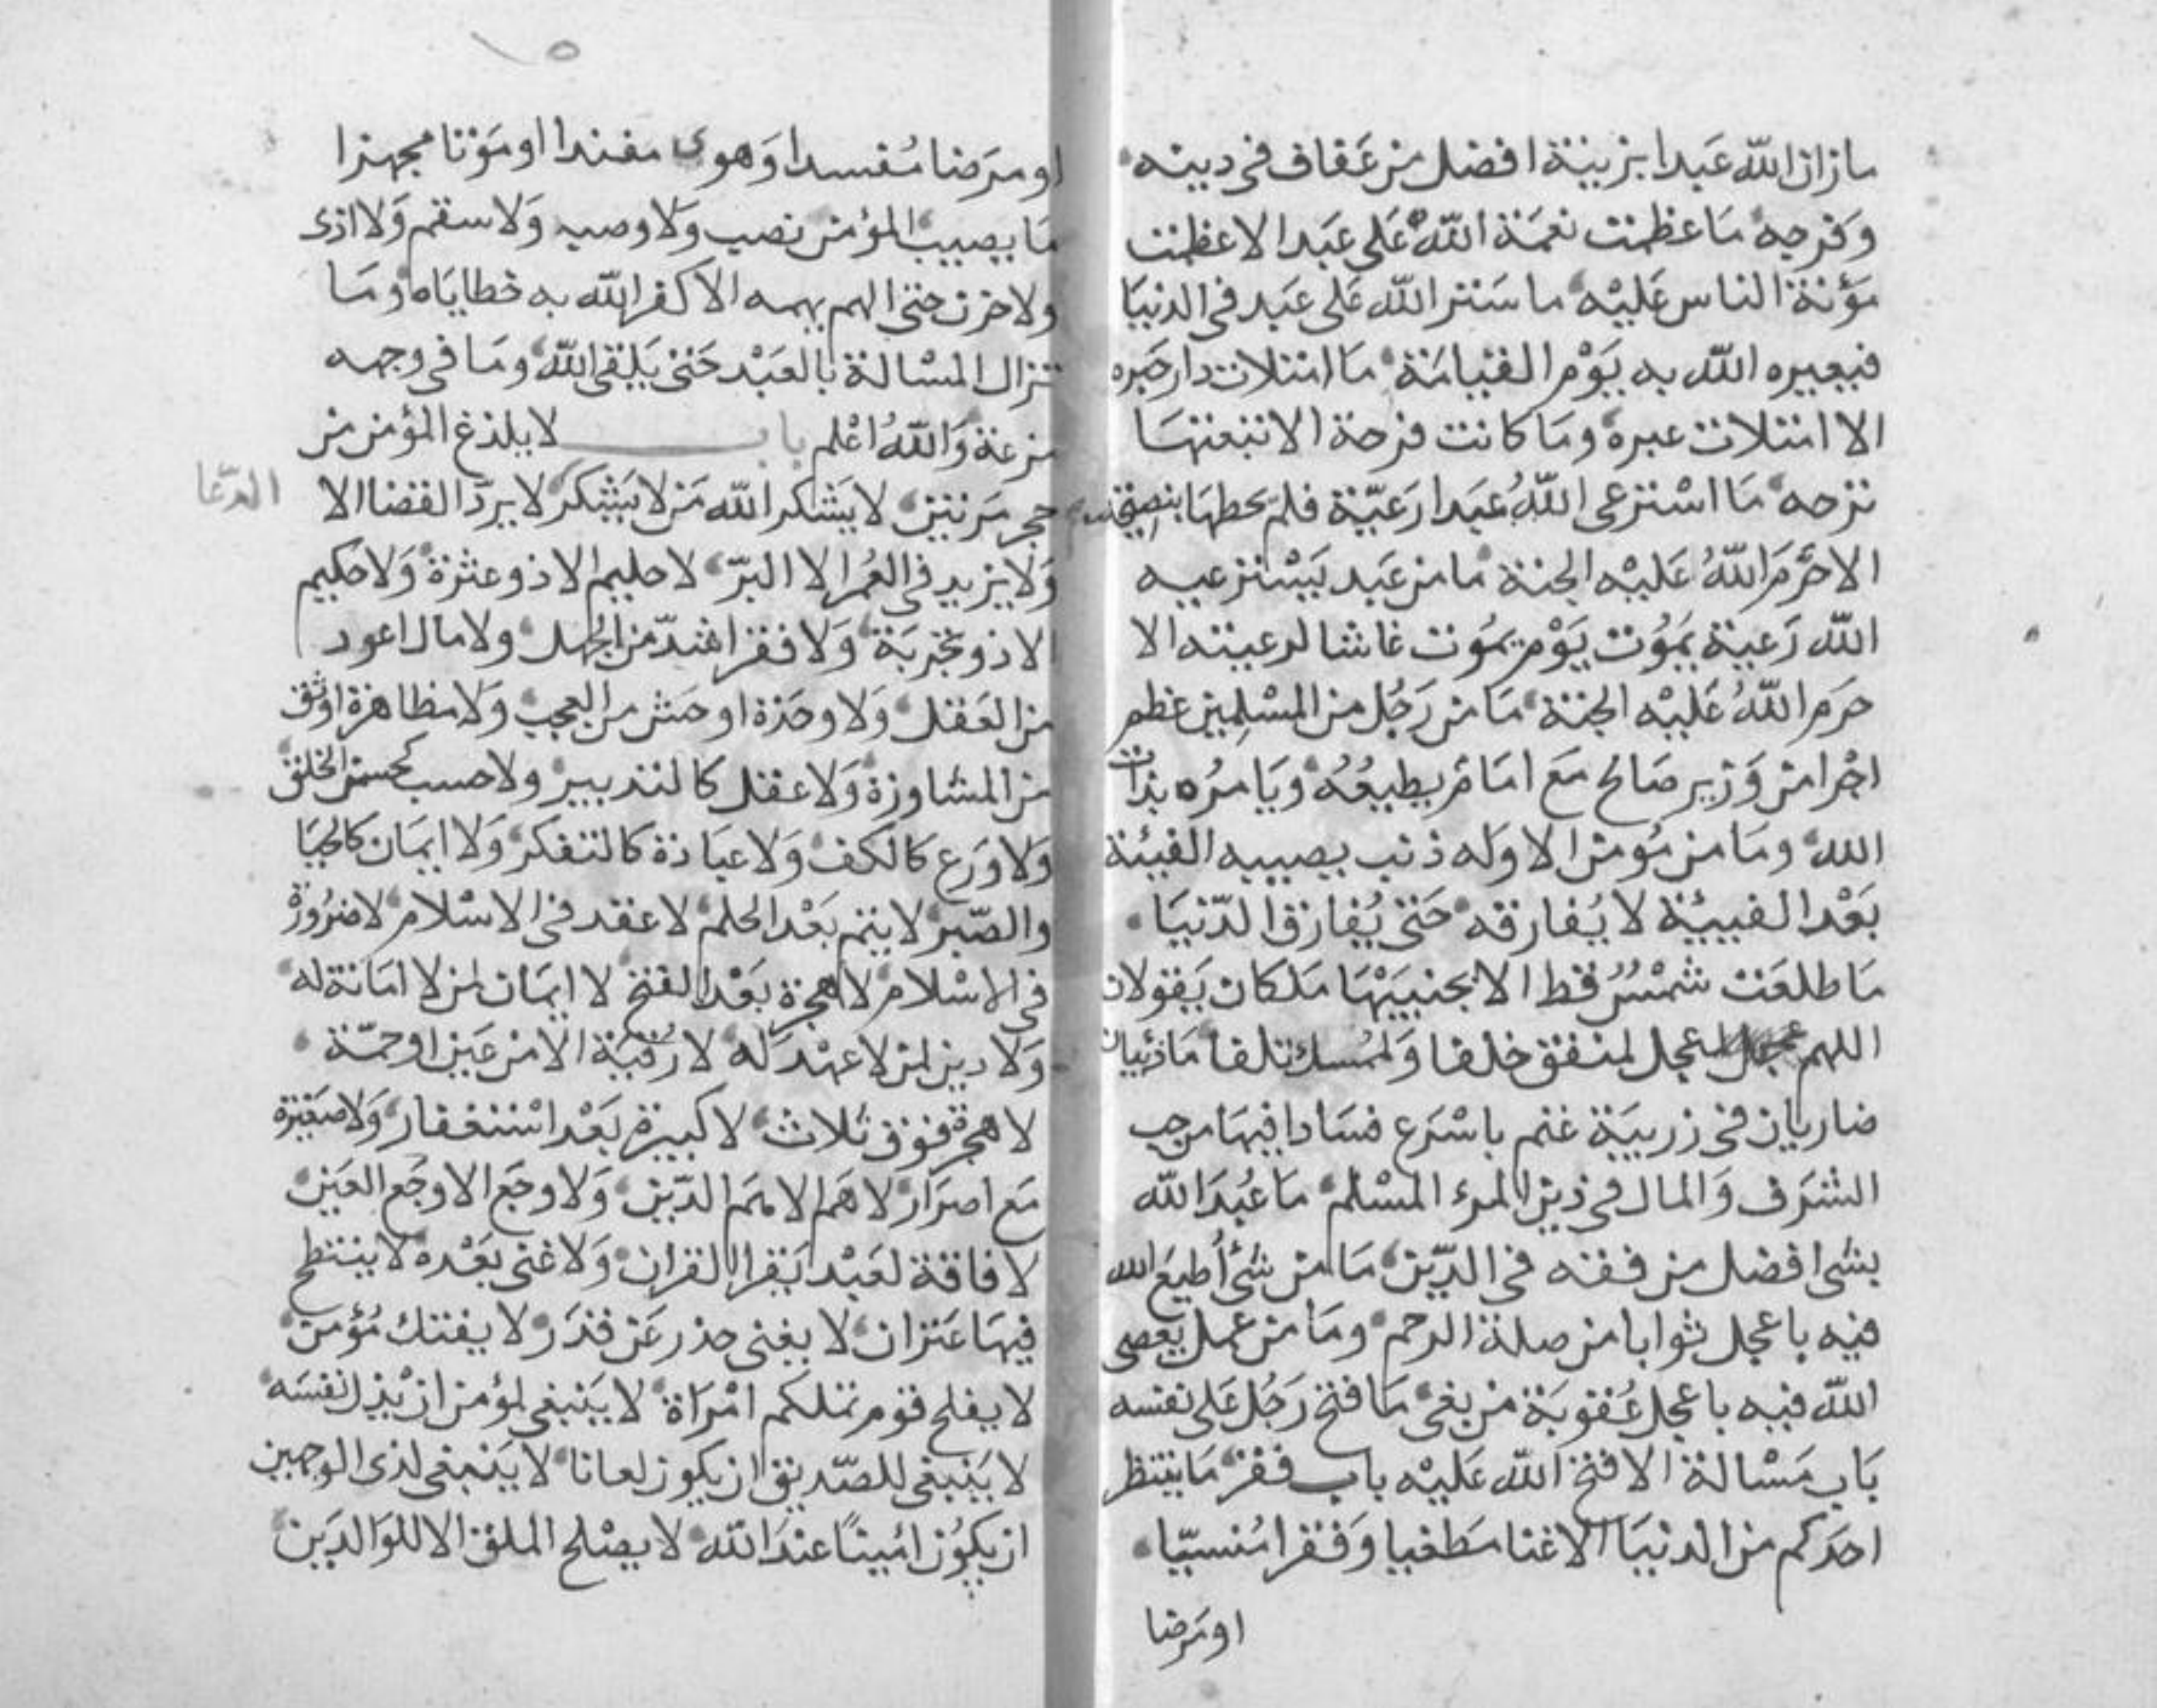 مازان الله عَبدا بزينة افضل من عَفاف فى دينه
وَفرجه مَا عظمت نعمَة اللهُ عَلى عبَد الا عظمت
مؤنة الناس عَليْه ما سَتر الله عَلى عبَد فى الدنيَا
فيعيره الله به يَوْم القيامَة مَا امتلات دار حَبره
الا امتلات عبره ومَا كانت فرحة الا تبعتهَا
ترحه مَا اسْترعى اللهُ عبَدا رَعيّة فلم يحطهَا بنصيحة
الا حَرّمَ اللهُ عَليْه الجنة مَا من عَبد يَسْترعيه
الله رَعية يمَوُت يَوْم يمَوُت غاشا لرعيته الا
حرم اللهُ عَليْه الجنة مَا من رَجُل من المسْلمِين عظم
اجْرا من وَزير صَالح مَع امَام يطيعُهُ وَيَامرُه بذات
الله ومَا من مُومن الا وَله ذنب يصيبه الفيئة
بَعْد الفيئة لا يُفارقه حَتى يُفارق الدّنيَا
مَا طلعَت شمْسٌ قط الا بجنبيَهَا مَلكان يَقولان
اللهم عجل لمنفق خلفا وَلممُسك تلفا مَا ذئبان
ضاريان فى زريبَة غنم باسْرَع فسَادا فيهَا من حب
الشرَف وَالمال فى دَين المرء المسْلم مَا عُبدَ الله
بشى افضل من فقه فى الدّين مَا من شئ أطيعَ الله
فيه باعجل ثوابا من صلة الرحم ومَا من عمل يعصى
الله فيه باعجل عُقوبَة من بغى مَا فتح رَجُل عَلى نفسه
بَاب مَسْالة الا فتح الله عَليْه باب فقر مَا ينتظر
احدَكم من الدنيَا الا غنا مطغيا وَفقرا مُنسيّا
او مَرضا
او مرَضا مُفسدا وَهوى مفندا او مَوْتا مجهزا
مَا يصيب المؤمن نصب وَلا وصب وَلا سقم وَلا اذى
ولا حزن حتى الهم يهمه الا كفر الله به خطايَاه ومَا
تزال المسْالة بالعَبْد حَتى يَلقى الله ومَا فى وجهه
مزعة وَاللهُ اعْلم باب لا يلذغ المؤمن من
حجر مَرتين لا يَشكر الله مَن لا يَشكر لا يردّ القضا الا
الدّعا
وَلا يزيد فى العُمر الا البرّ لا حليم الا ذو عثرة وَلا حكيم
الا ذو تجْربَة وَلا فقر اشدّ من الجهل ولا مال اعود
من العَقل وَلا وحَدة اوحَش من العجب وَلا مظاهرة اوثق
من المشاورَة وَلا عقل كالتدبير ولا حسب كحسن الخلق
وَلا وَرَع كالكف وَلا عبَادة كالتفكر وَلا ايمَان كالحيَا
والصّبر لا يتم بَعْد الحلم لا عقد فى الاسْلام لا ضرُورَة
فى الاسْلام لا هجرة بَعْد الفتح لا ايمَان لمن لا امَانة له
وَلا دين لمن لا عهْد له لا رُقيَة الا من عَين او حمّة
لا هجرة فوق ثلاث لا كبيرة بَعْد اسْتغفار وَلا صَغيرة
مَع اصرَار لا هَم الا همَم الدّين وَلا وجَع الا وجَع العَين
لا فاقة لعَبْد يَقرا القران وَلا غنى بَعْده لا ينتطح
فيهَا عَنزان لا يغنى حذر عَن قدَر لا يفتك مُؤمن
لا يفلح قوم تملكهم امْرَاة لا يَنبغى لمؤمن ان يُذل نفسَه
لا يَنبغى للصّديق ان يكون لعانا لا يَنبغى لذى الوجهين
ان يكوُن امُينًا عندَ الله لا يصْلح الملق الا للوَالدَين